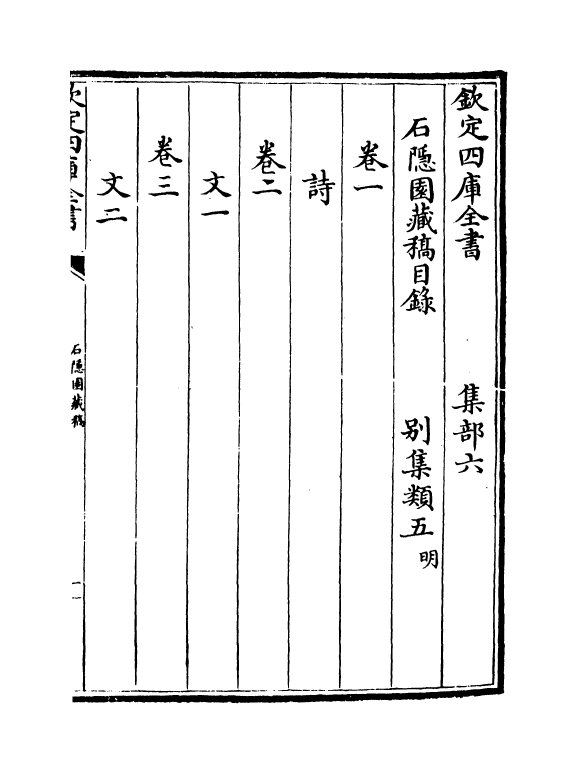 欽定四庫全書 集部六
石隱園藏稿目錄 别集類五明
卷一
詩
卷二
文一
卷三
文二
欽定四庫全書 石隱園藏稿